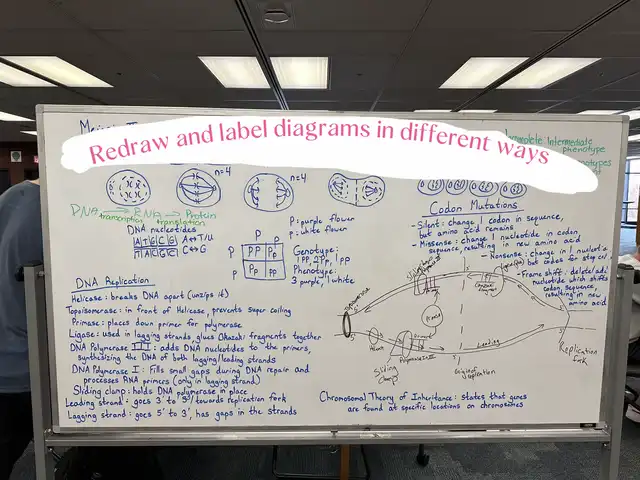 Redraw and label diagrams in different ways
Incomplete Intermediate
phenotype
n=4
n=4
DNA → RNA → Protein
transcription translation
DNA nucleotides
A T G C G A↔T/U
C↔G
P P
P PP Pp
P Pp
P: purple flower
p: white flower
Genotype:
Phenotype:
3 purple, 1 white
Codon Mutations
- Silent: change 1 codon in sequence,
but amino acid remains
- Missense: change 1 nucleotide in codon
sequence, resulting in new amino acid
- Nonsense: change in 1 nucleotide
but codes for stop
- Frame shift: delete/add
nucleotide which shifts
codon sequence,
resulting in new
amino acid
DNA Replication
Helicase: breaks DNA apart (unzips it)
Topoisomerase: in front of Helicase, prevents super coiling
Primase: places down primer for polymerase
Ligase: used in lagging strands, glues Okazaki fragments together
DNA Polymerase III: adds DNA nucleotides to the primers,
synthesizing the DNA of both lagging/leading strands
DNA Polymerase I: Fills small gaps during DNA repair and
processes RNA primers (only in lagging strand)
Sliding clamp: holds DNA polymerase in place
Leading strand: goes 3' to 5' towards replication fork
Lagging strand: goes 5' to 3', has gaps in the strands
Primer
Polymerase III
Leading
Sliding
Clamp
origin of replication
Replication
fork
Chromosomal Theory of Inheritance: states that genes
are found at specific locations on chromosomes